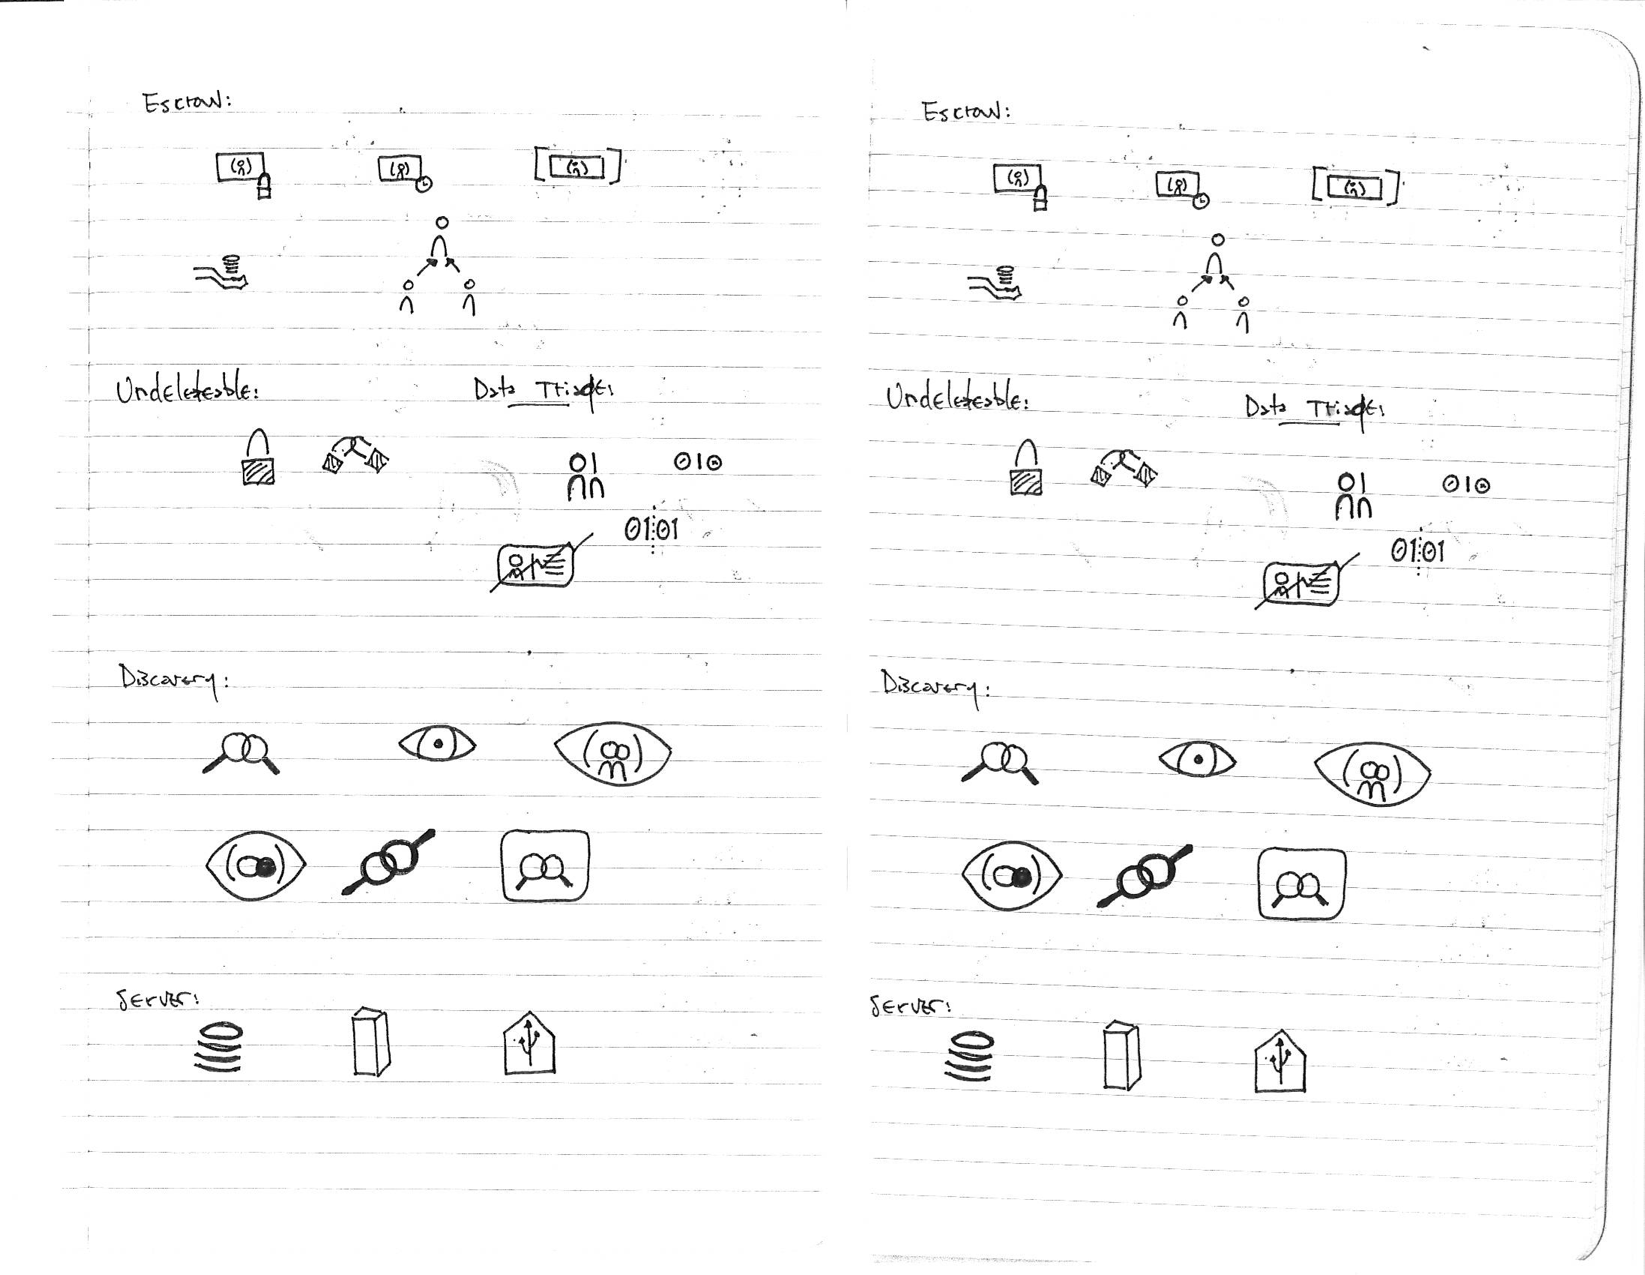 Escrow:
Undeleteable:
Data Triage:
01
010
01:01
Discovery:
Server:
Escrow:
Undeleteable:
Data Triage:
01
010
01:01
Discovery:
Server: